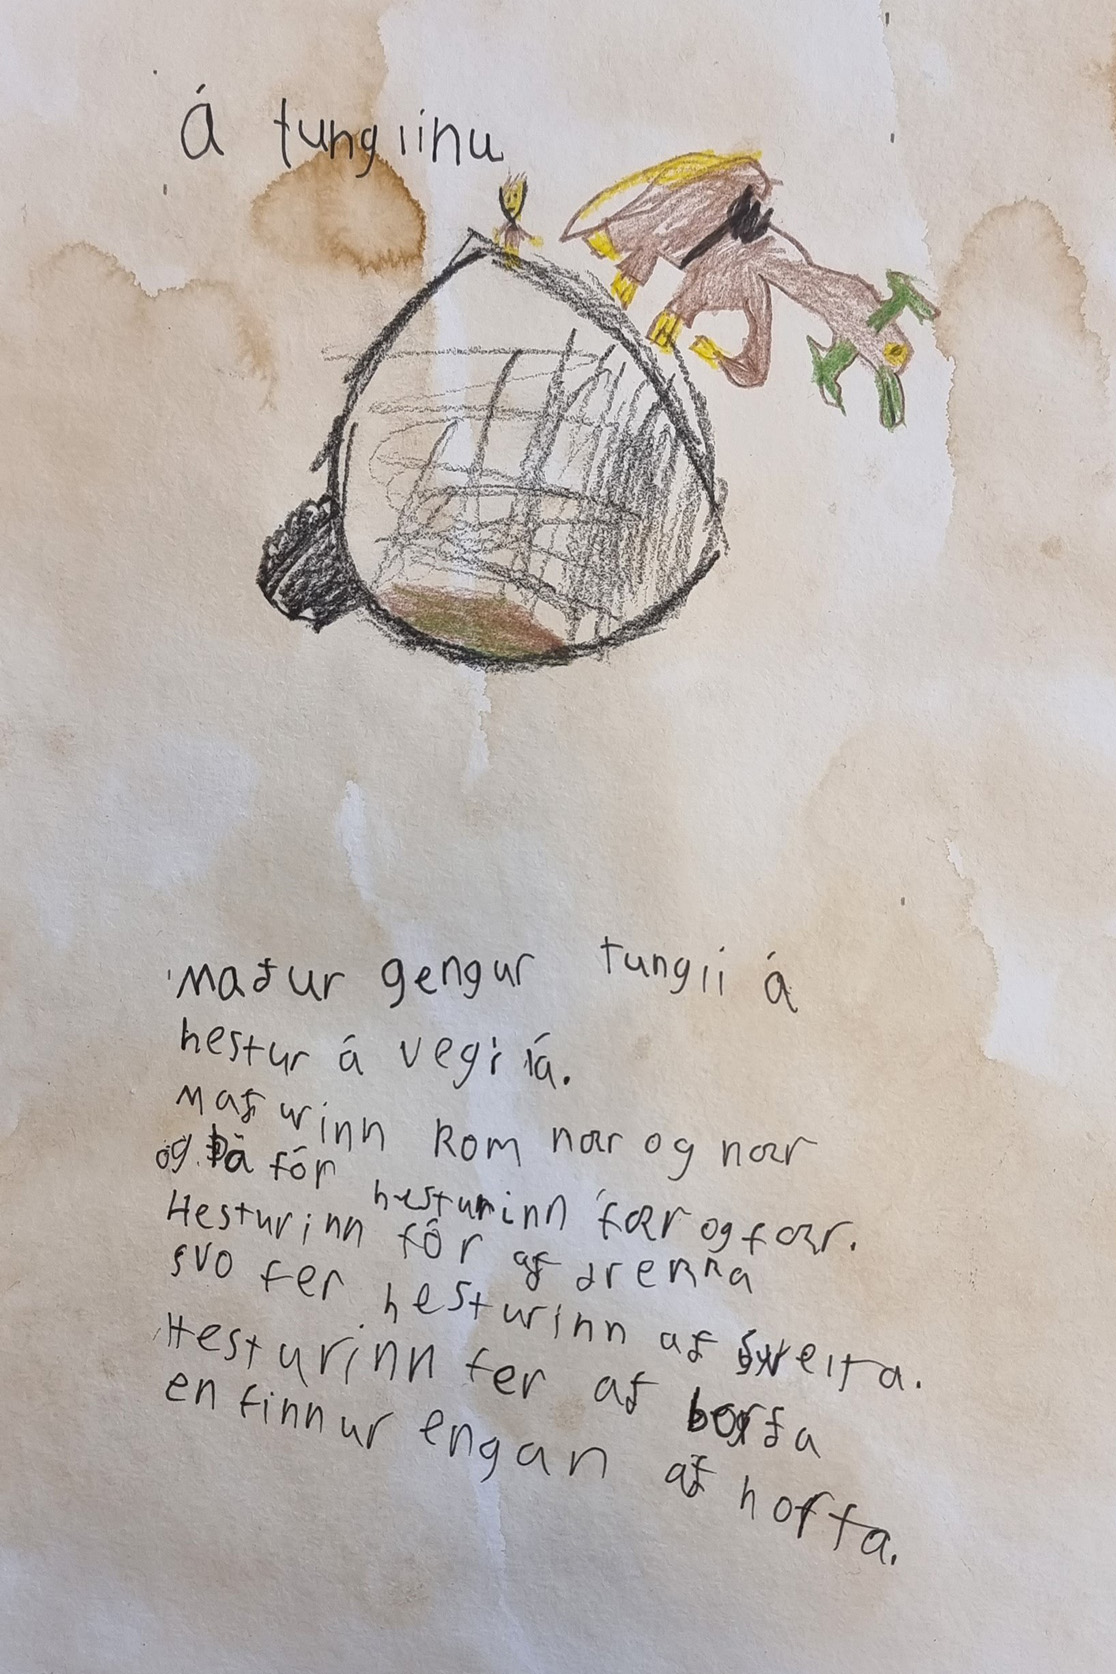 á tunglinu
Maður gengur tungli á
hestur á vegi lá.
Maðurinn kom nær og nær
og þá fór hesturinn fær og fær.
Hesturinn fór að drekka
svo fer hesturinn að
Hesturinn fer að borða
en finnur engan að hofta.